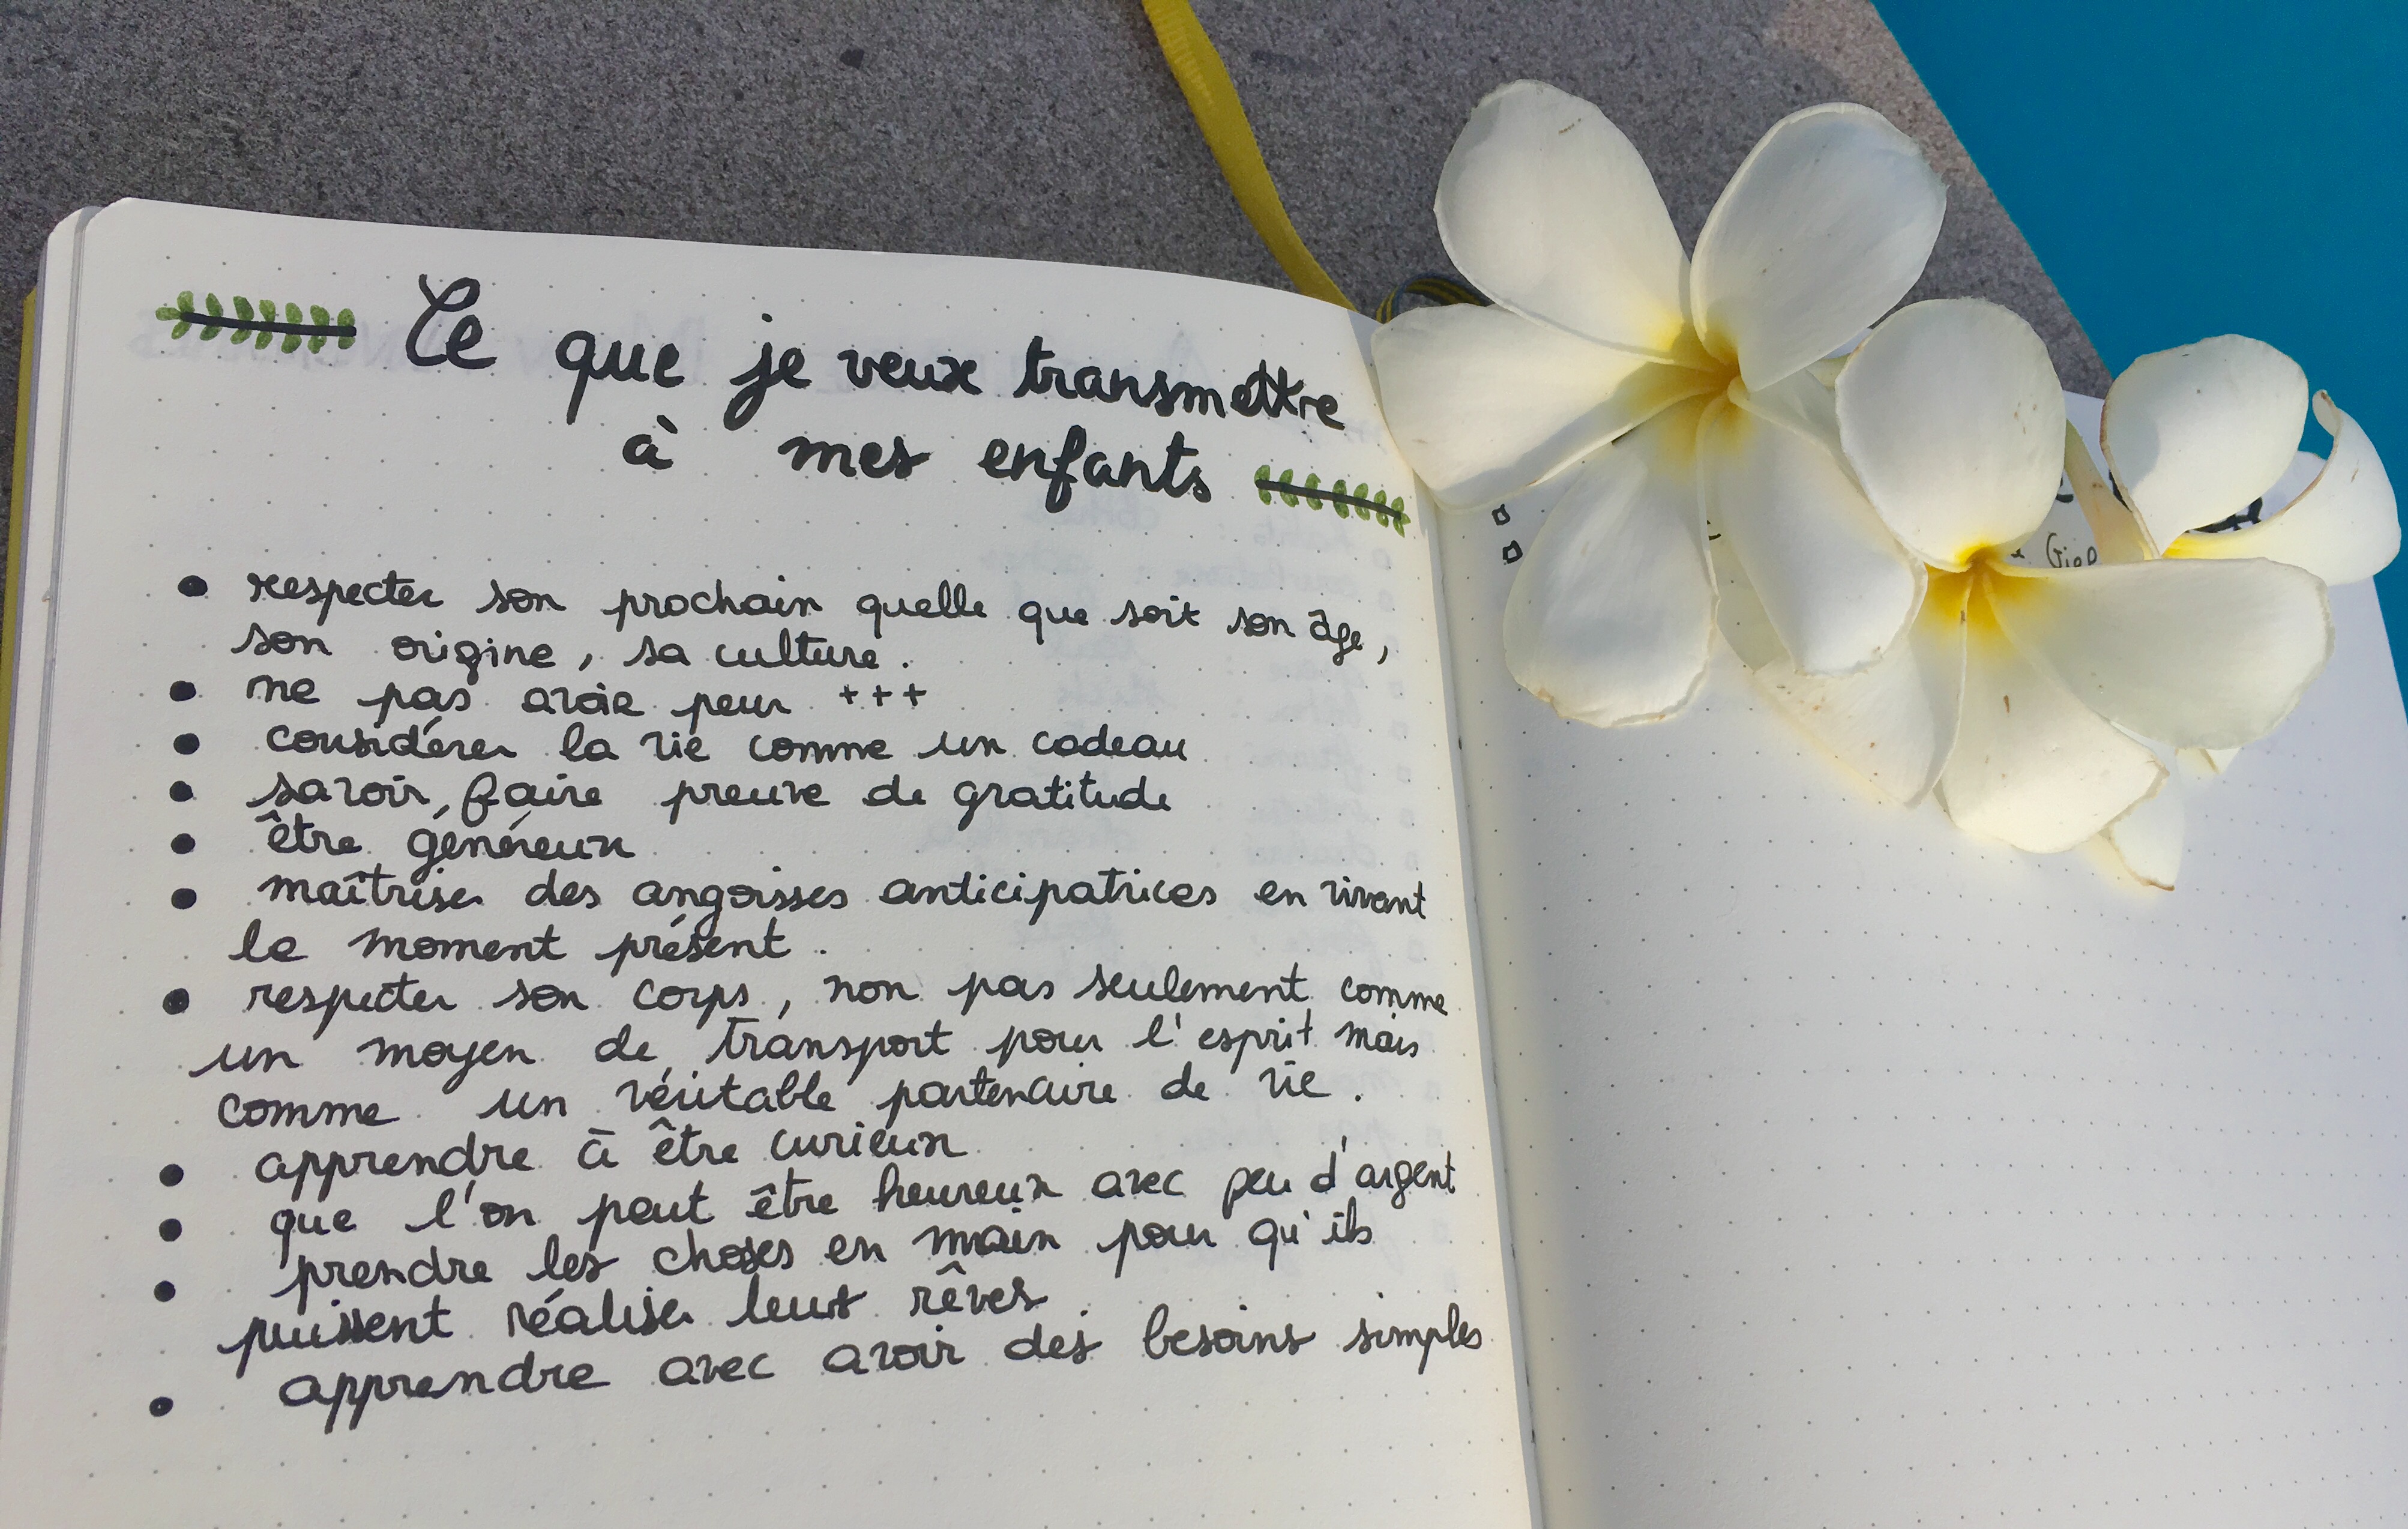 Ce que je veux transmettre
à mes enfants
• respecter son prochain quelle que soit son âge,
son origine, sa culture.
• ne pas avoir peur +++
• considérer la vie comme un cadeau
• savoir, faire preuve de gratitude
• être généreux
• maîtriser des angoisses anticipatrices en vivant
le moment présent.
• respecter son corps, non pas seulement comme
un moyen de transport pour l'esprit mais
comme un véritable partenaire de vie.
• apprendre à être curieux
• que l'on peut être heureux avec peu d'argent
• prendre les choses en main pour qu'ils
puissent réaliser leurs rêves
• apprendre avec avoir des besoins simples